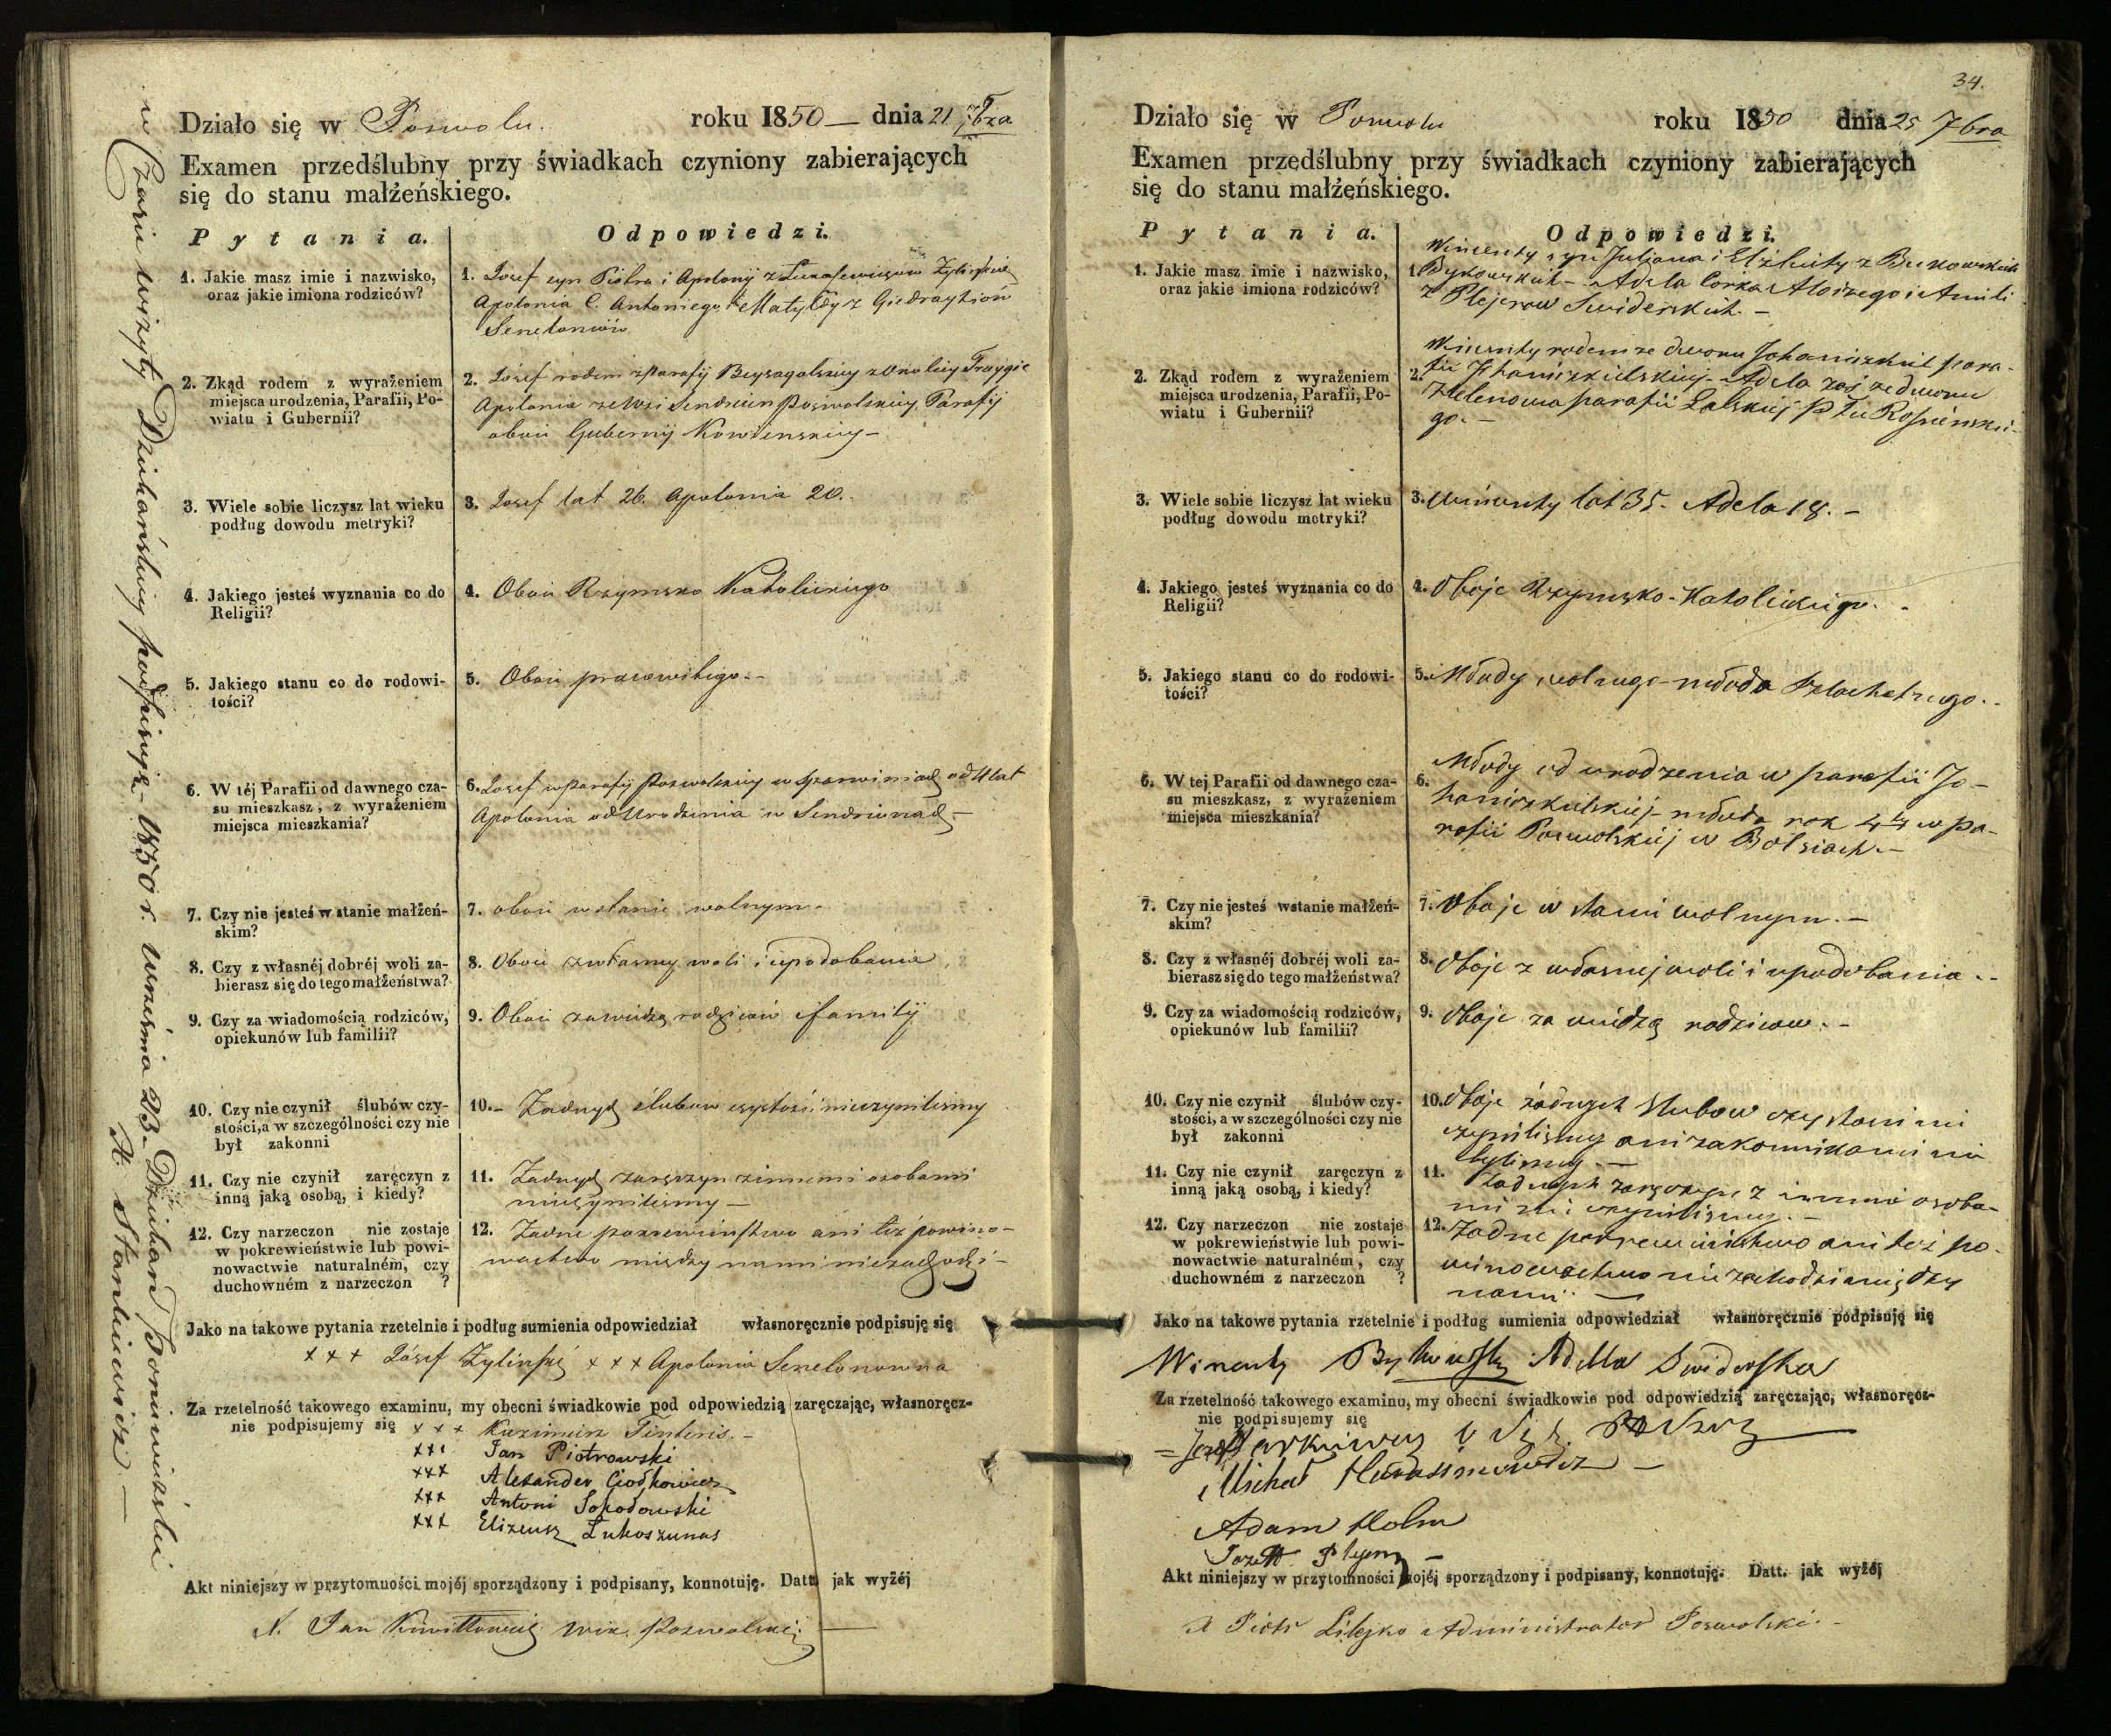 Działo się w Poswolu. roku 1850 — dnia 21 7bra
Examen przedślubny przy świadkach czyniony zabierających
się do stanu małżeńskiego.
Pytania.
Odpowiedzi.
1. Jakie masz imie i nazwisko,
oraz jakie imiona rodziców?
1. Józef syn Piotra i Apolonij z Łukasewiczow
Apolonia C. Antoniego i Matyldy z Giedraytiów
Senelanniów
2. Zkąd rodem z wyrażeniem
miejsca urodzenia, Parafii, Po-
wiatu i Gubernii?
2. Józef rodem z Parafij Beysagolskiey z Okolicy
Apolonia ze Wsi Poswolskiey Parafij
oboie Gubernij Kowienskiey —
3. Wiele sobie liczysz lat wieku
podług dowodu metryki?
3. Józef lat 26. Apolonia 20.
4. Jakiego jesteś wyznania co do
Religii?
4. Oboie Rzymsko Katolickiego
5. Jakiego stanu co do rodowi-
tości?
5. Oboie pracowitego. -
6. W téj Parafii od dawnego cza-
su mieszkasz, z wyrażeniem
miejsca mieszkania?
6. Józef w Parafij Poswolskiey w od lat
Apolonia od Urodzenia w —
7. Czy nie jesteś w stanie małżeń-
skim?
7. oboie w stanie wolnym.
8. Czy z własnéj dobréj woli za-
bierasz się do tego małżeństwa?
8. Oboie z własney woli i upodobania
9. Czy za wiadomością rodziców,
opiekunów lub familii?
9. Oboie za wiedzą rodziców i familij
10. Czy nie czynił ślubów czy-
stości, a w szczególności czy nie
był zakonni
10. - Żadnych ślubow czystości nieczyniliśmy
11. Czy nie czynił zaręczyn z
inną jaką osobą, i kiedy?
11. Żadnych zaręczyn z innemi osobami
nieczyniliśmy —
12. Czy narzeczon nie zostaje
w pokrewieństwie lub powi-
nowactwie naturalném, czy
duchowném z narzeczon ?
12. Żadne pokrewieństwo ani też powino-
wactwo między nami niezachodzi -
Jako na takowe pytania rzetelnie i podług sumienia odpowiedział własnoręcznie podpisuję się
+++ Józef Zyliński +++ Apolonia Senelonowna
Za rzetelność takowego examinu, my obecni świadkowie pod odpowiedzią zaręczając, własnoręcz-
nie podpisujemy się +++ Kazimierz Tinteris. -
+++ Jan Piotrowski
+++ Alexander Giodkowicz
+++ Antoni Sokołowski
+++ Elizeusz Łukoszunas
Akt niniejszy w przytomności mojéj sporządzony i podpisany, konnotuję. Datt. jak wyżéj
X. Jan Wik. Poswolskij —
w Czasie wizyty Dziekańskiey podpisuję - 1850 r. Września 23. Dziekan Poniewieżski
X. Stankiewicz —
34.
Działo się w Poswolu roku 1850 dnia 25 7bra
Examen przedślubny przy świadkach czyniony zabierających
się do stanu małżeńskiego.
Pytania.
Odpowiedzi.
1. Jakie masz imie i nazwisko,
oraz jakie imiona rodziców?
1. Wincenty syn Juliana i Elżbiety z Bukowskich
Bykowskich - Adela Córka Aloizego i Amili
z Plejerow Swiderskich. —
2. Zkąd rodem z wyrażeniem
miejsca urodzenia, Parafii, Po-
wiatu i Gubernii?
2. Wincenty rodem ze dworu Johaniszkiel para-
fii Johaniszkielskiej - Adela zaś ze dworu
Zielenowa parafii Pttu Rosienskie-
go. —
3. Wiele sobie liczysz lat wieku
podług dowodu metryki?
3. Wincenty lat 35. Adela 18. —
4. Jakiego jesteś wyznania co do
Religii?
4. Oboje Rzymsko-Katolickiego. -
5. Jakiego stanu co do rodowi-
tości?
5. Młody wolnego - młoda Szlachetnego. -
6. W tej Parafii od dawnego cza-
su mieszkasz, z wyrażeniem
miejsca mieszkania?
6. Młody od urodzenia w parafii Jo-
haniszkielskiej - młoda rok w Pa-
rafii Poswolskiej w Bolsiach. —
7. Czy nie jesteś wstanie małżeń-
skim?
7. Oboje w stanie wolnym. —
8. Czy z własnéj dobréj woli za-
bierasz się do tego małżeństwa?
8. Oboje z własnej woli i upodobania. -
9. Czy za wiadomością rodziców,
opiekunów lub familii?
9. Oboje za wiedzą rodzicow. -
10. Czy nie czynił ślubów czy-
stości, a w szczególności czy nie
był zakonni
10. Oboje żadnych slubow czystosci nie
czynilismy ani zakonnikami nie
bylismy. —
11. Czy nie czynił zaręczyn z
inną jaką osobą, i kiedy?
11. Żadnych zaręczyn z innemi osoba-
mi nie czynilismy. —
12. Czy narzeczon nie zostaje
w pokrewieństwie lub powi-
nowactwie naturalném, czy
duchowném z narzeczon ?
12. Żadne pokrewieństwo ani też po-
winowactwo nie zachodzi między
nami. —
Jako na takowe pytania rzetelnie i podług sumienia odpowiedział własnoręcznie podpisuję się
Wincenty Bykowski Adella Swiderska
Za rzetelność takowego examinu, my obecni świadkowie pod odpowiedzią zaręczając, własnoręcz-
nie podpisujemy się
Michał Herasimowicz —
Adam Holm
Józeff Plejer —
Akt niniejszy w przytomności mojéj sporządzony i podpisany, konnotuję. Datt. jak wyżéj
X Piotr Lilejko Administrator Poswolski. -